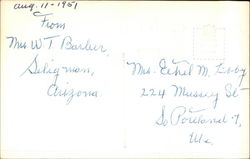 Aug. 11-1951
From
Mrs W T Barber,
Seligman,
Arizona
Mrs. Ethel M.
224 Mussey St
So Portland 7,
Me.